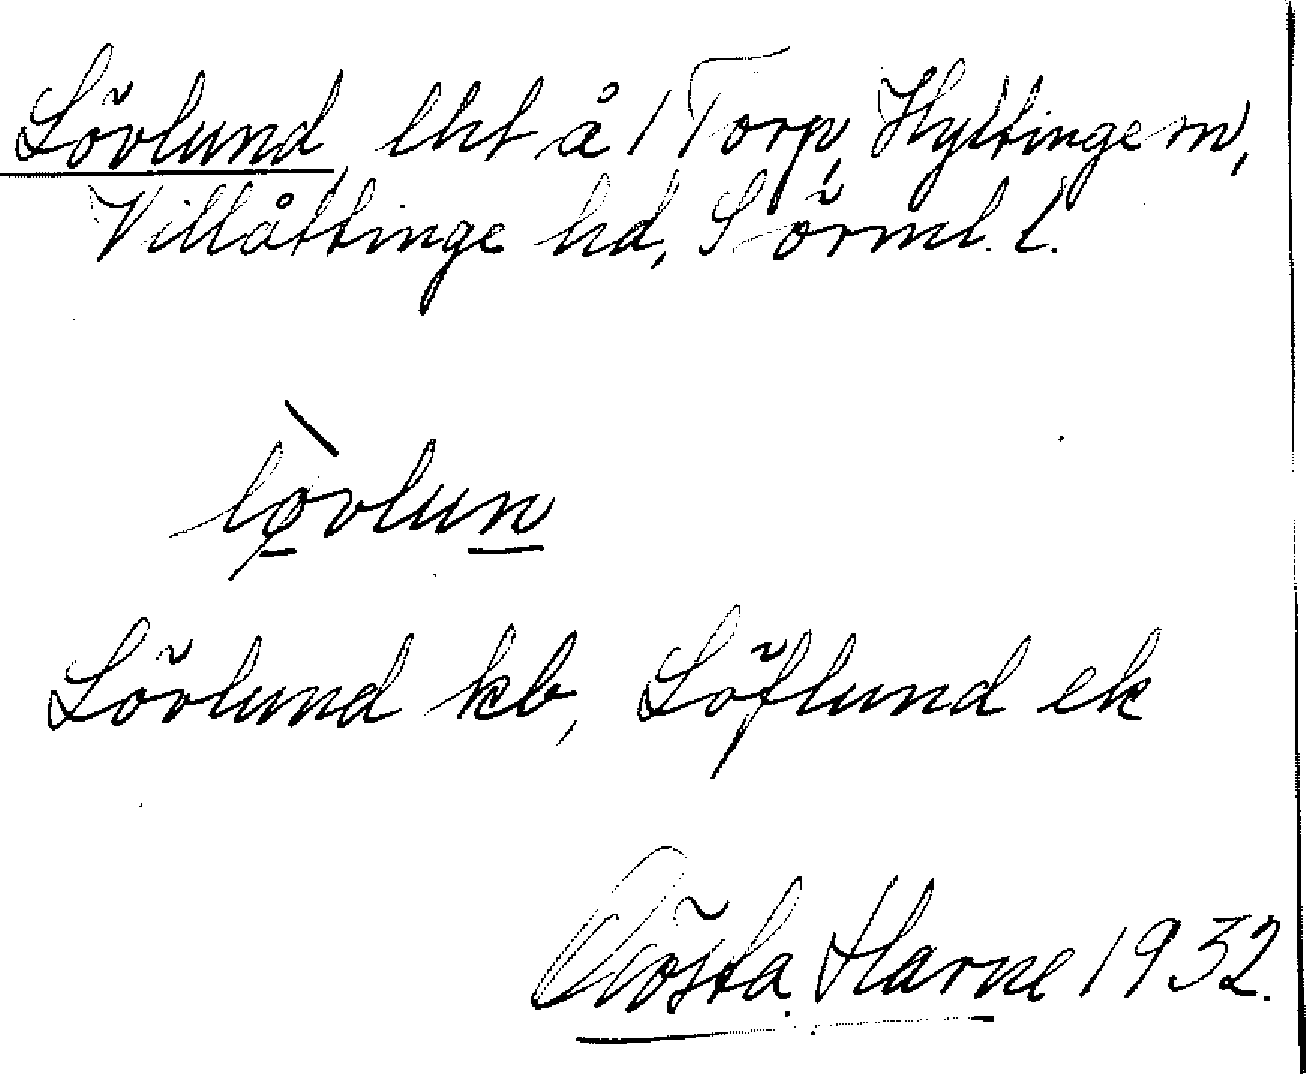 Lövlund, lht å 1 Torp, Hyltinge sn,
Villåttinge hd, Sörml. l.
lø̀vlun
Lövlund kb, Löflund ek
Gösta Harne 1932.